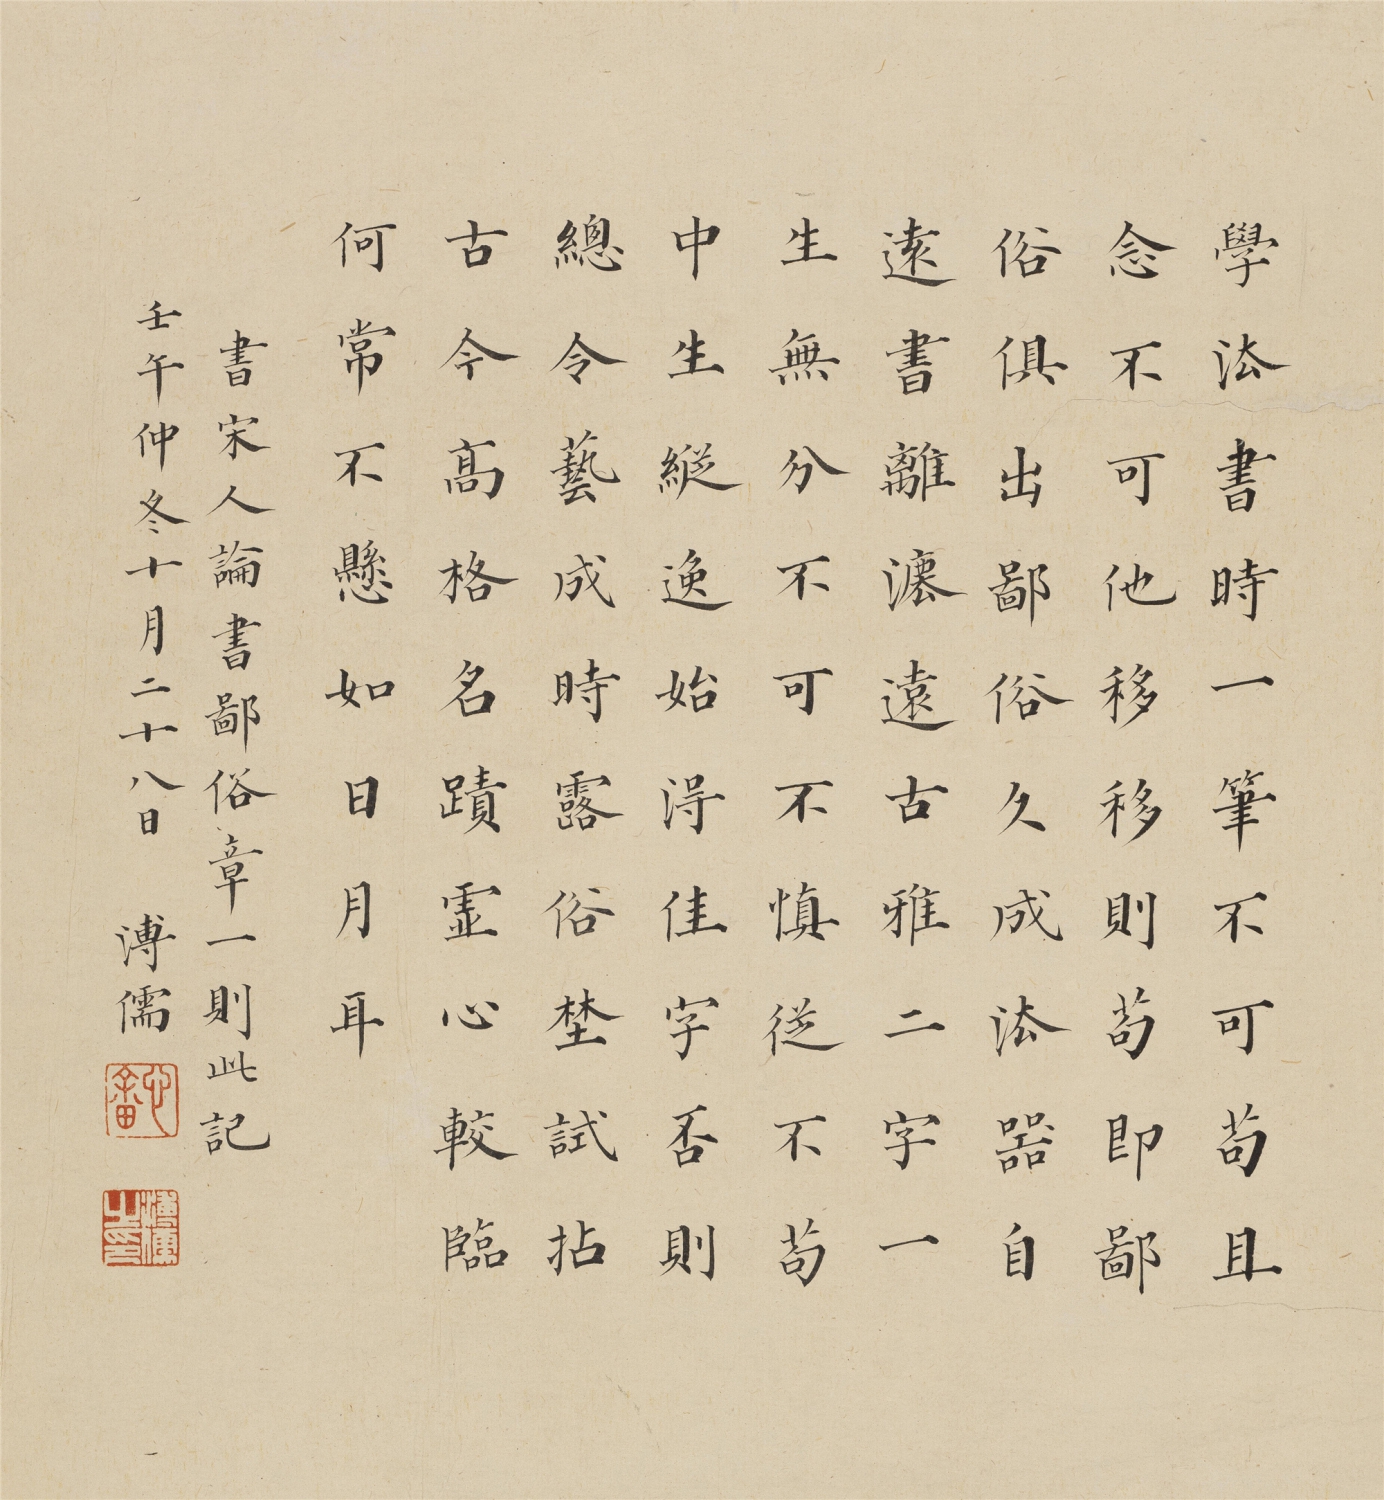 學法書時一筆不可苟且
念不可他移移則苟即鄙
俗俱出鄙俗久成法器自
遠書離瀍遠古雅二字一
生無分不可不慎從不苟
中生縱逸始得佳字否則
總令藝成時露俗埜試拈
古今高格名蹟虛心較臨
何常不懸如日月耳
書宋人論書鄙俗章一則此記
壬午仲冬十月二十八日 溥儒